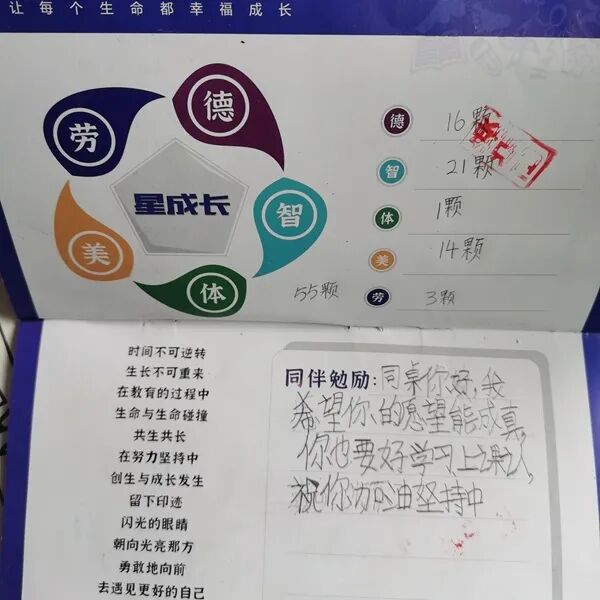 让每个生命都幸福成长
德
劳
智
美
体
星成长
德 16颗
智 21颗
体 1颗
美 14颗
55颗 劳 3颗
时间不可逆转
生长不可重来
在教育的过程中
生命与生命碰撞
共生共长
在努力坚持中
创生与成长发生
留下印迹
闪光的眼睛
朝向光亮那方
勇敢地向前
去遇见更好的自己
同伴勉励:同桌你好,我
希望你的愿望能成真,
你也要好学习上课人,
祝你加油坚持中